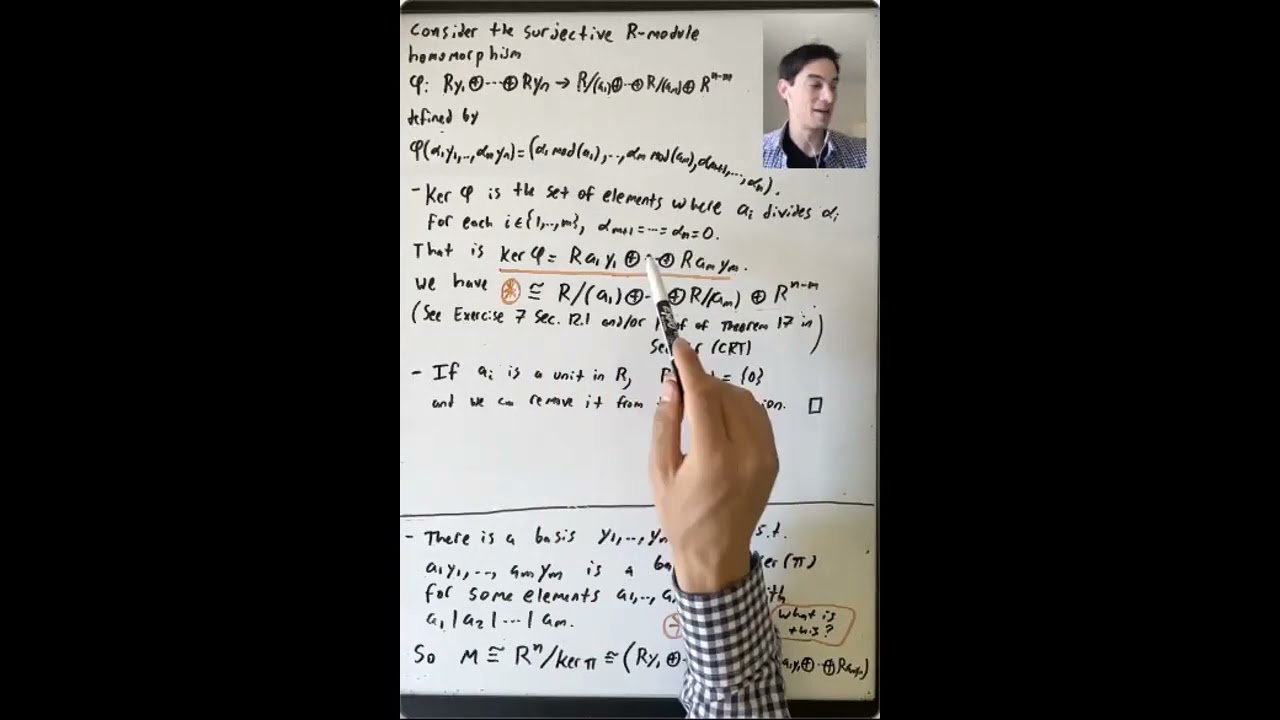 Consider the surjective R-module
homomorphism
φ: Ry₁⊕···⊕Ryₙ → R/(a₁)⊕··⊕R/(aₘ)⊕Rⁿ⁻ᵐ
defined by
φ(α₁y₁,..,αₙyₙ)=(α₁ mod(a₁),..,αₘ mod(aₘ),αₘ₊₁,...,αₙ).
- Ker φ is the set of elements where aᵢ divides αᵢ
for each i∈{1,..,m}, αₘ₊₁=···=αₙ=0.
That is ker φ = Ra₁y₁⊕··⊕Raₘyₘ.
we have ⊛ ≅ R/(a₁)⊕··⊕R/(aₘ)⊕Rⁿ⁻ᵐ
(See Exercise 7 Sec. 12.1 and/or of Theorem 17 in
(CRT))
- If aᵢ is a unit in R, = {0}
and we can remove it from
□
- There is a basis y₁,..,yₙ s.t.
a₁y₁,.., aₘyₘ is a ker(π)
for some elements a₁,..,
a₁|a₂|···|aₘ.
What is
this?
So M ≅ Rⁿ/ker π ≅ (Ry₁⊕ a₁y₁⊕··⊕Raₘyₘ)